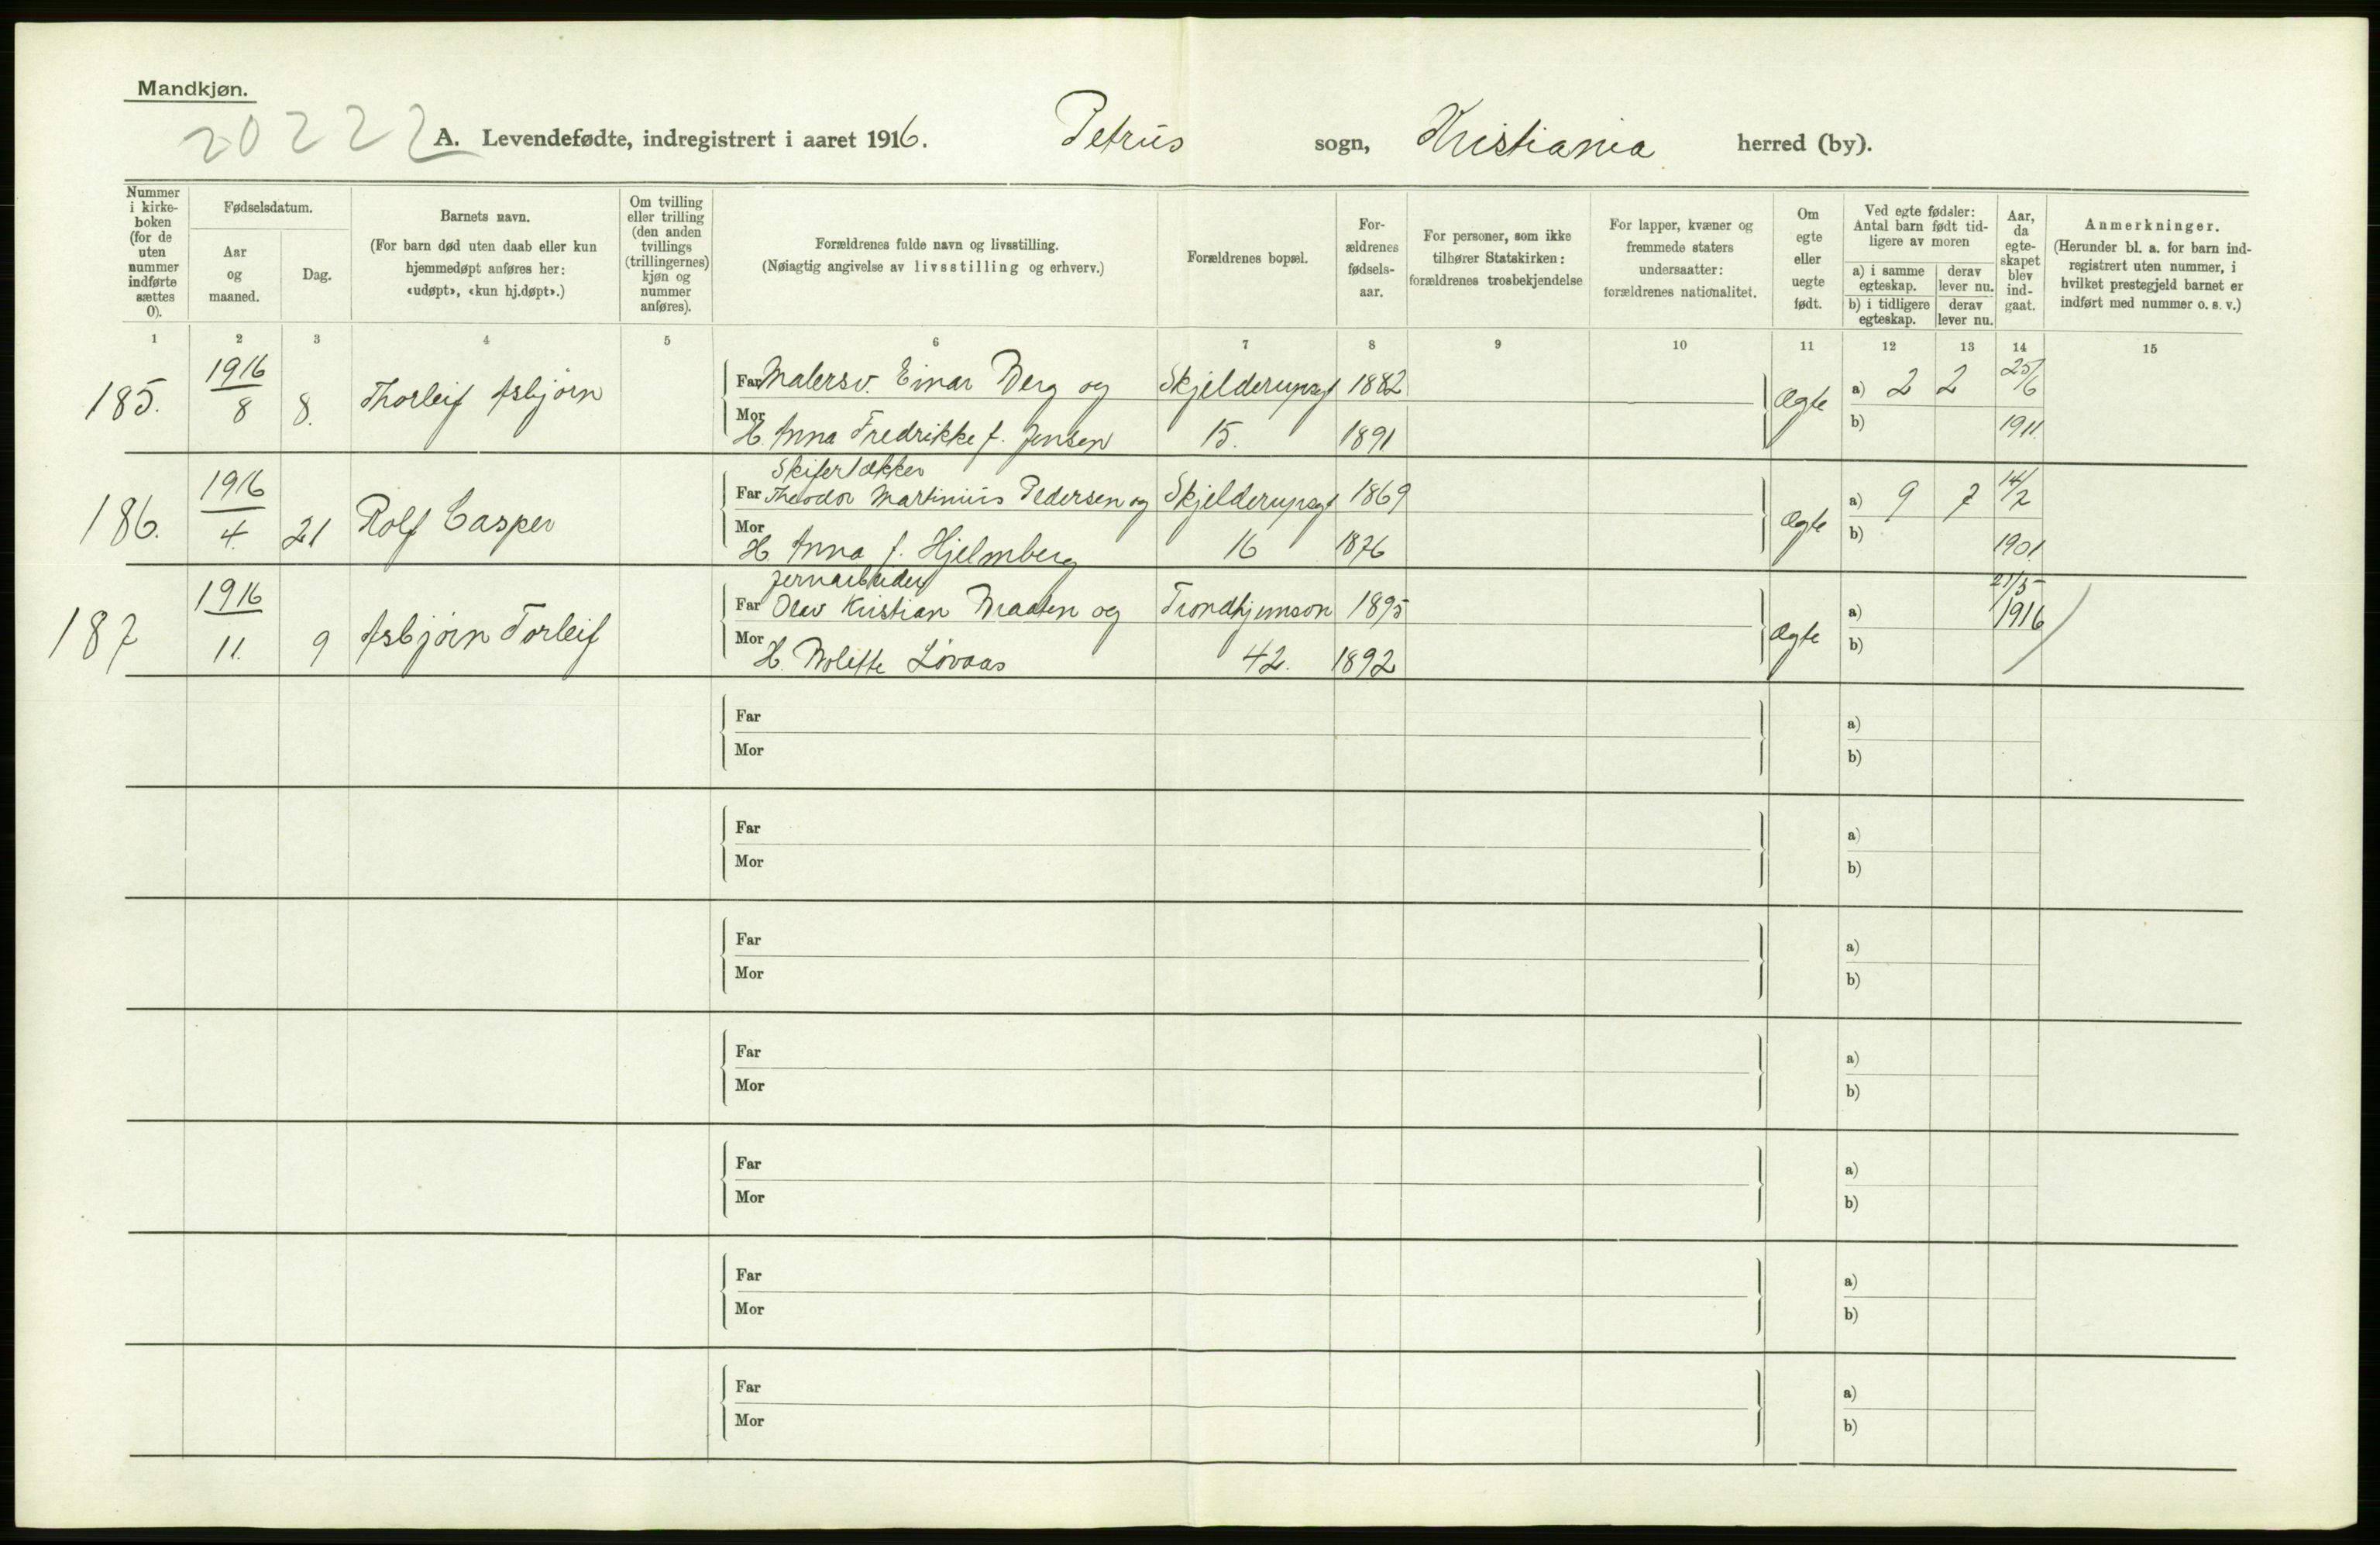 Mandkjøn.
20222
A. Levendefødte, indregistrert i aaret 1916. Petrus sogn, Kristiania herred (by).
Nummer i kirke-boken (for de uten nummer indførte sættes 0).
Fødselsdatum.
Aar og maaned.
Dag.
Barnets navn.
(For barn død uten daab eller kun hjemmedøpt anføres her: «udøpt», «kun hj.døpt».)
Om tvilling eller trilling (den anden tvillings (trillingernes) kjøn og nummer anføres).
Forældrenes fulde navn og livsstilling.
(Nøiagtig angivelse av livsstilling og erhverv.)
Forældrenes bopæl.
For-ældrenes fødsels-aar.
For personer, som ikke tilhører Statskirken: forældrenes trosbekjendelse
For lapper, kvæner og fremmede staters undersaatter: forældrenes nationalitet.
Om egte eller uegte født.
Ved egte fødsler: Antal barn født tid-ligere av moren
a) i samme egteskap.
derav lever nu.
b) i tidligere egteskap.
derav lever nu.
Aar, da egte-skapet blev ind-gaat.
Anmerkninger.
(Herunder bl. a. for barn ind-registrert uten nummer, i hvilket prestegjeld barnet er indført med nummer o. s. v.)
1 2 3 4 5 6 7 8 9 10 11 12 13 14 15
185. 1916/8 8. Thorleif Asbjørn
Far Malersv. Einar Berg og Skjelderupsgt 1882
Mor H. Anna Fredrikke f. Jensen 15. 1891
Ægte a) 2 2 25/6
b) 1911.
186. 1916/4. 21 Rolf Casper
Skifertækker
Far Theodor Martinius Pedersen og Skjelderupsgt 1869
Mor H. Anna f. Hjelmberg 16 1876
Ægte a) 9 7 14/2
b) 1901
187 1916/11. 9 Asbjørn Torleif
Jernarbeider
Far Olav Kristian Braaten og Trondhjemsvn 1895
Mor H. Løvaas 42. 1892
Ægte a) 21/5 1916
b)
Far
Mor
a)
b)
Far
Mor
a)
b)
Far
Mor
a)
b)
Far
Mor
a)
b)
Far
Mor
a)
b)
Far
Mor
a)
b)
Far
Mor
a)
b)